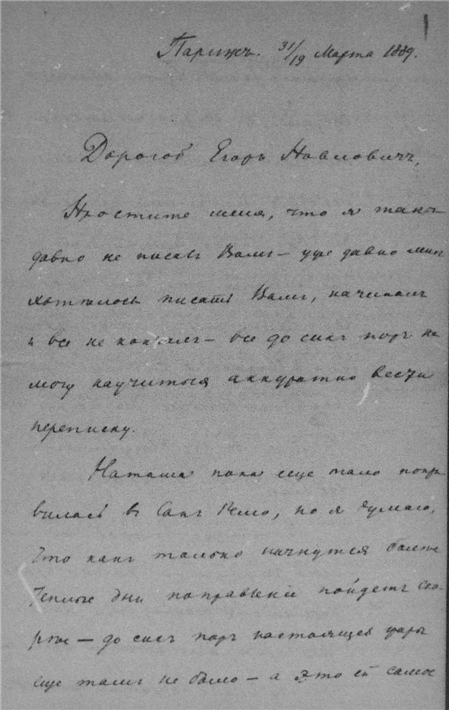 Парижъ. 31/19 Марта 1889.
Дорогой Егоръ Павловичъ,
Простите меня, что я такъ
давно не писалъ Вамъ – уже давно мнѣ
хотѣлось писать Вамъ, начиналъ
и все не кончалъ – все до сихъ поръ не
могу научиться аккуратно вести
переписку.
Наташа пока еще мало попра
вилась въ Санъ Ремо, но я думаю,
что какъ только начнутся болѣе
теплые дни поправленіе пойдетъ ско-
рѣе – до сихъ поръ настоящей жары
еще тамъ не было – а это ей самое